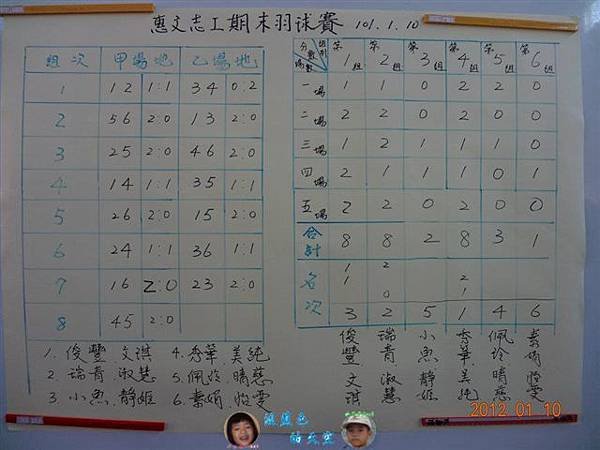 惠文志工期末羽球賽 101.1.10
組次 甲場地 乙場地
1 12 1:1 34 0:2
2 56 2:0 13 2:0
3 25 2:0 46 2:0
4 14 1:1 35 1:1
5 26 2:0 15 2:0
6 24 1:1 36 1:1
7 16 2:0 23 2:0
8 45 2:0
分數 組別 場數 第1組 第2組 第3組 第4組 第5組 第6組
一場 1 1 0 2 2 0
二場 2 2 0 2 0 0
三場 1 2 1 1 1 0
四場 2 1 1 1 0 1
五場 2 2 0 2 0 0
合計 8 8 2 8 3 1
名次 3 2 5 1 4 6
1 2
1 2
0 1
俊豐文淇 瑞青淑慧 小魚靜姬 秀華美純 佩玲晴慈 素娟怡雯
1. 俊豐 文淇 4. 秀華 美純
2. 瑞青 淑慧 5. 佩玲 晴慈
3 小魚 靜姬 6. 素娟 怡雯
2012 01 10
藍藍色
的天空